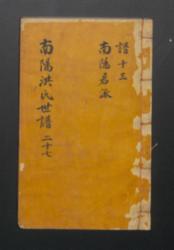 譜十三
南陽君派
南陽洪氏世譜 二十七